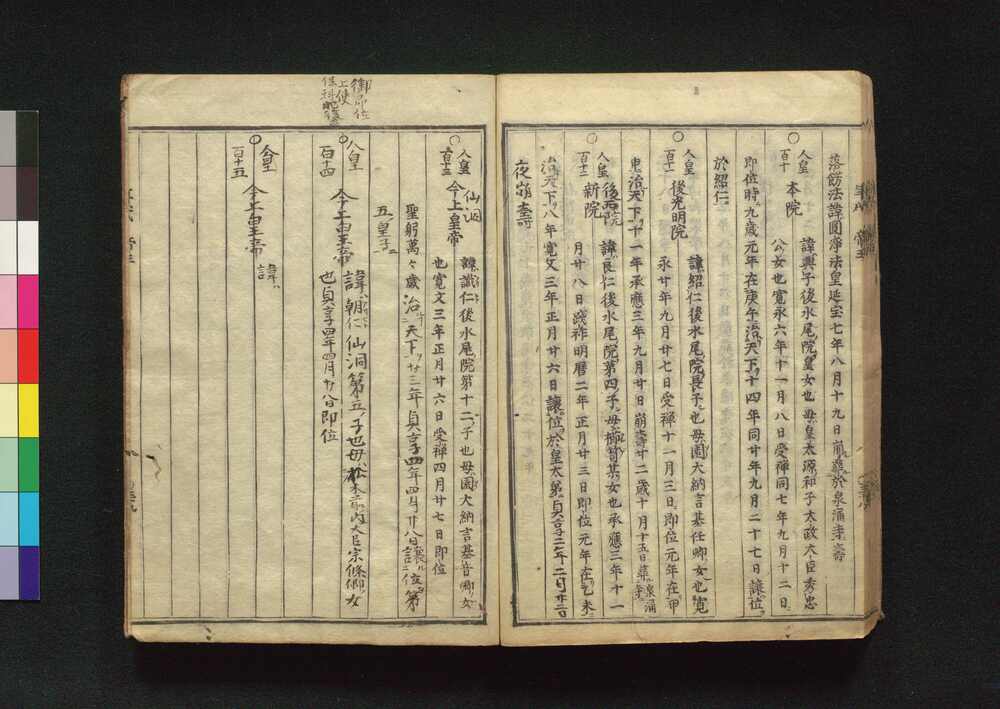 落飾法諱圓浄法皇延宝七年八月十九日崩葬於泉涌寺壽
人皇百十 本院 諱興子後水尾院皇女也母皇太源和子太政大臣秀忠
公女也寛永六年十一月八日受禅同七年九月十二日
即位時九歳元年在庚午治天下十四年同廿年九月二十七日譲位
於紹仁
人皇百十一 後光明院 諱紹仁後水尾院長子也母園大納言基任卿女也寛
永廿年九月廿七日受禅十一月三日即位元年在甲
鬼治天下十一年承應三年九月廿日崩壽廿二歳十月十五日葬泉涌寺
人皇百十二 後西院 新院 諱良仁後水尾院第四子母櫛笥某女也承應三年十一
月廿八日践祚明暦二年正月廿三日即位元年在乙未
治天下八年寛文三年正月廿六日譲位於皇太弟貞享二年二月廿二日
夜崩壽
人皇百十三 仙洞 今上皇帝 諱識仁後水尾院第十二ノ子也母園大納言基音卿ノ女
也寛文三年正月廿六日受禅四月廿七日即位
聖躬萬々歳治天下廿三年貞享四年四月廿八日譲位第
五ノ皇子ニ
人皇百十四 今上皇帝 諱朝仁仙洞第五ノ子也母松木前内大臣宗條卿ノ女
也貞享四年四月廿八日即位
人皇百十五 今上皇帝 諱
御即位
上使
保科肥後